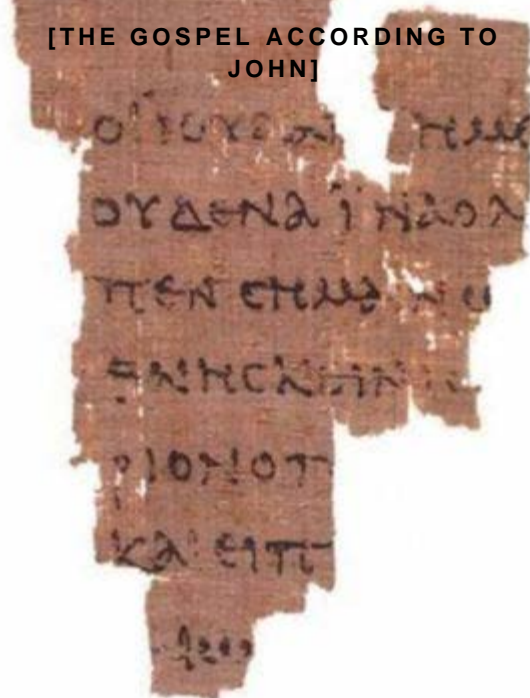 [THE GOSPEL ACCORDING TO
JOHN]
ΟΙ ΙΟΥΔΑΙ ΗΜ
ΟΥΔΕΝΑ ΪΝΑ Ο Λ
ΠΕΝ CΗΜΑΙΝΩ
ΘΝΗCΚΕΙΝ
ΡΙΟΝ Ο Π
ΚΑΙ ΕΙΠ